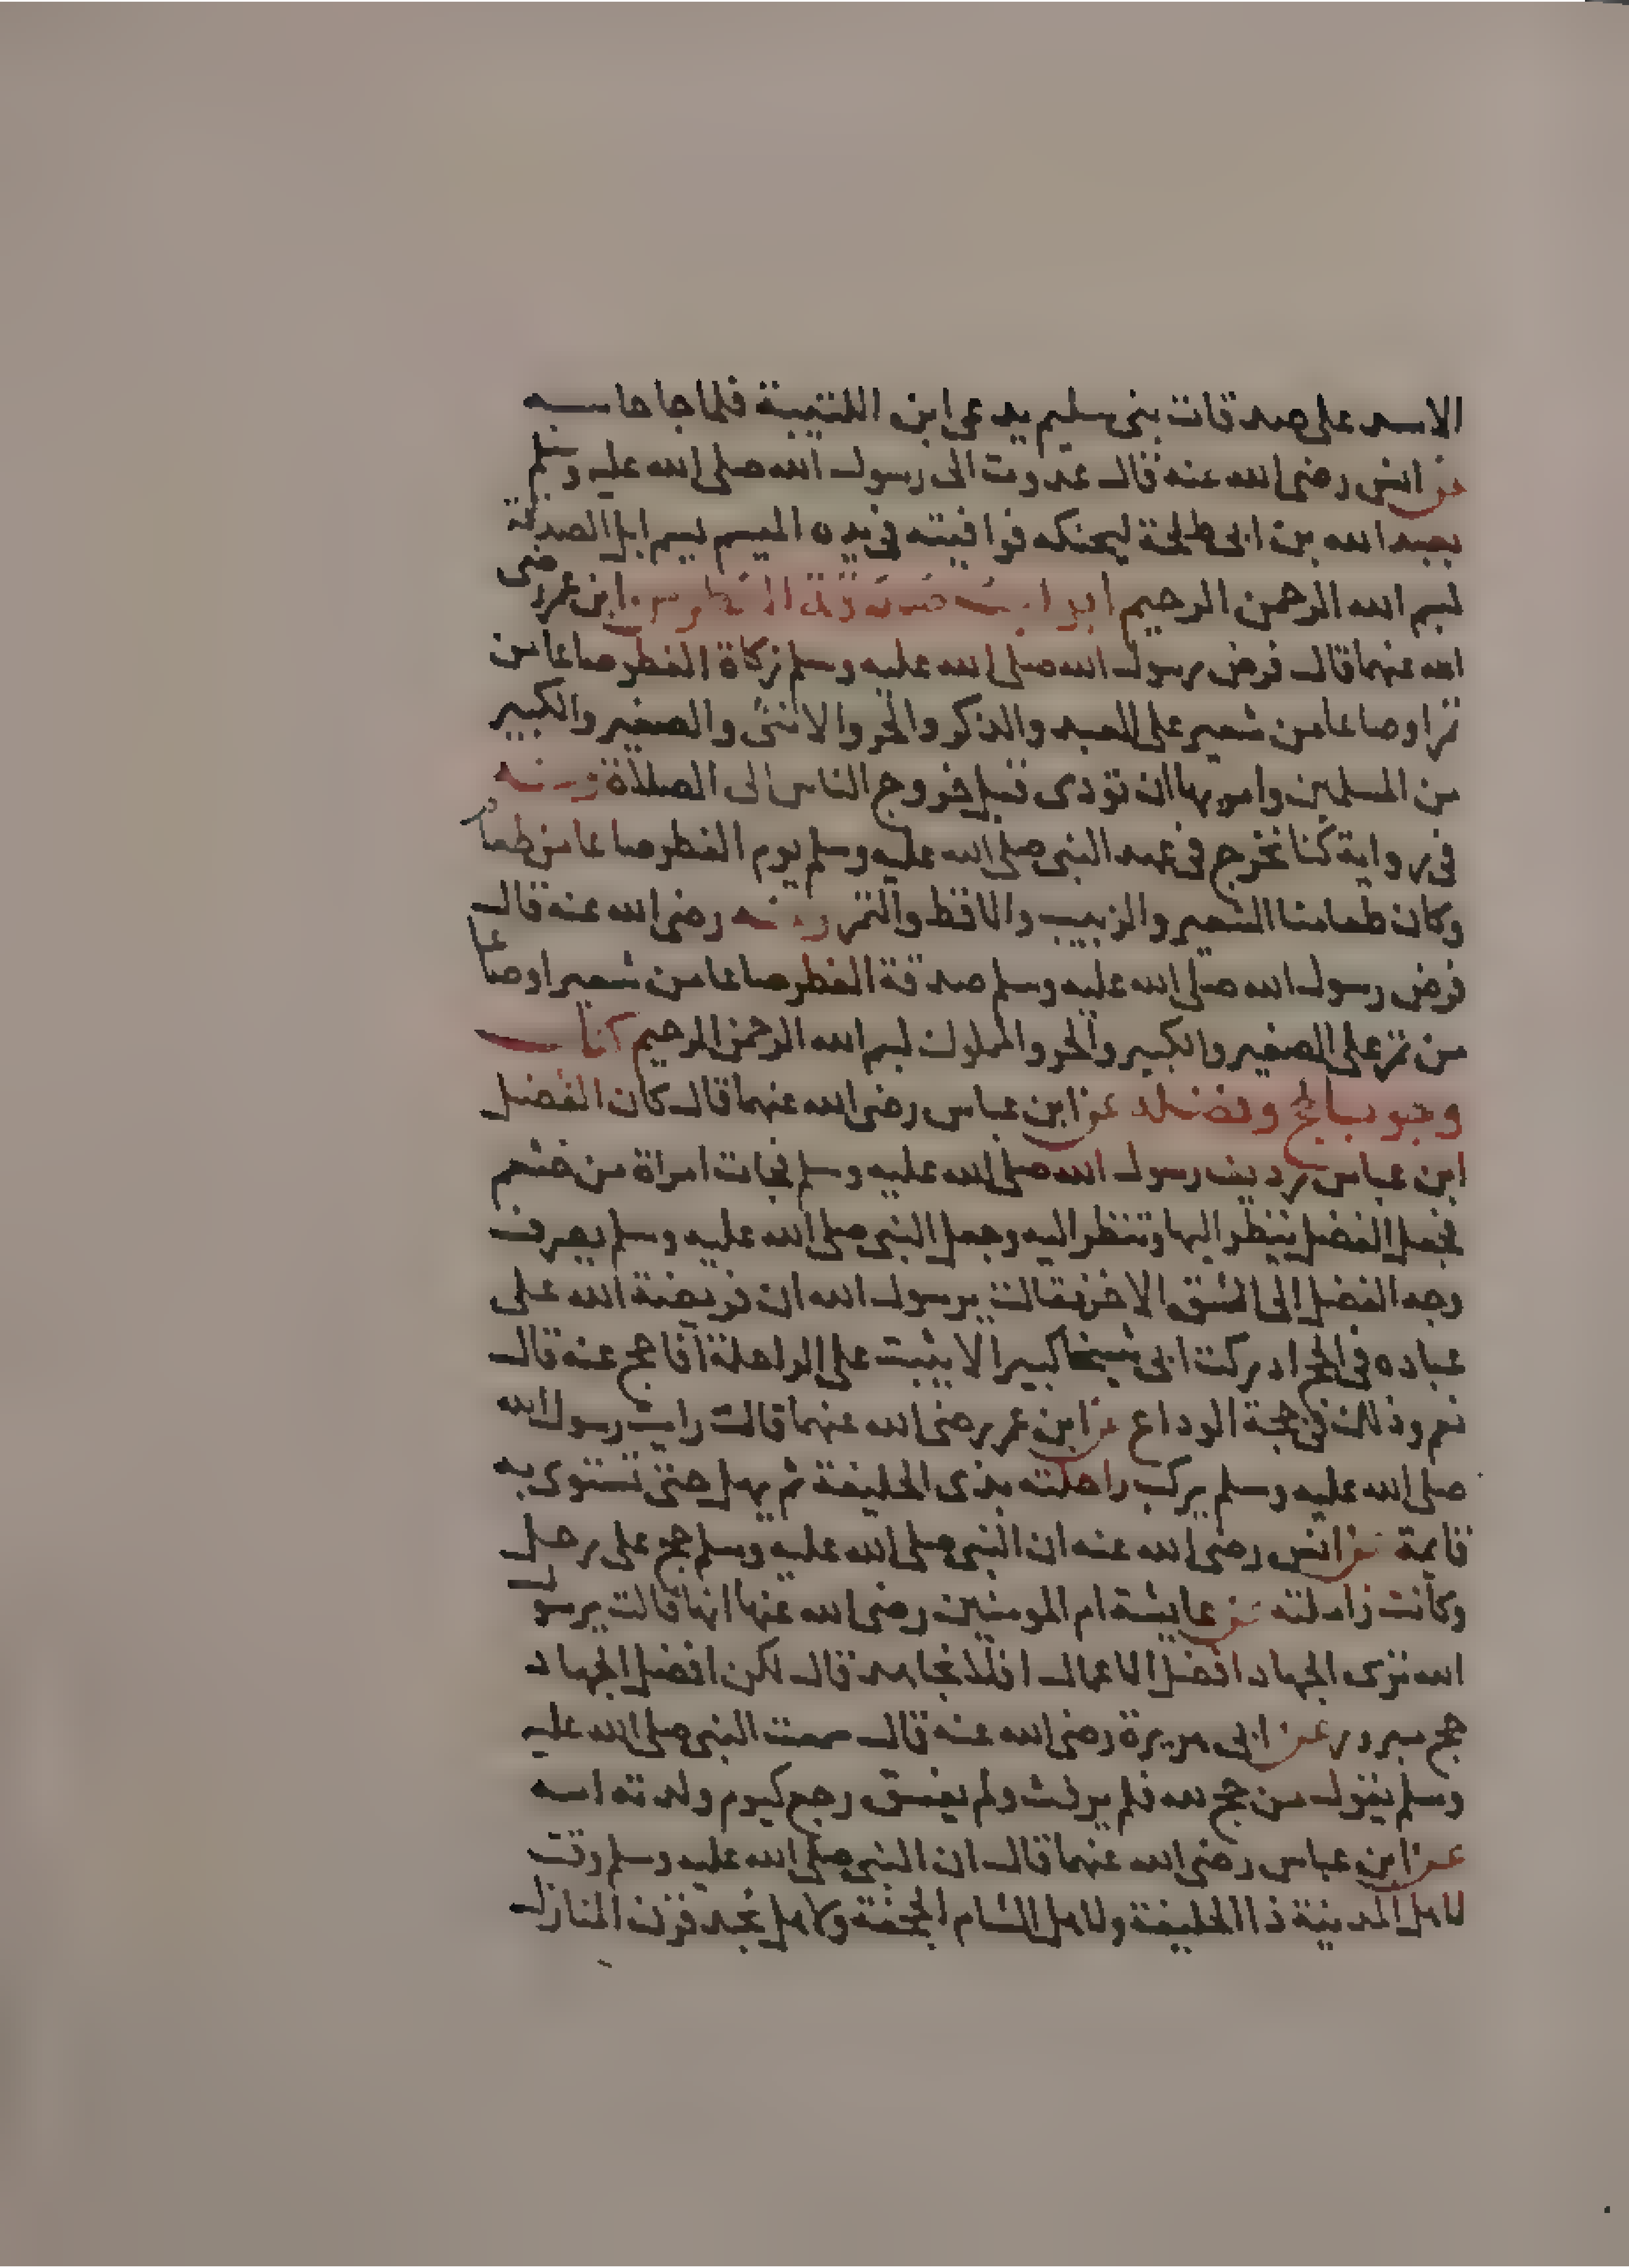 الاسد على صدقات بنى سليم يدعى ابن اللتبية فلما جا حاسبه
عن انس رضى الله عنه قال غدوت الى رسول الله صلى الله عليه وسلم
بعبد الله بن ابى طلحة ليحنكه فوافيته فى يده الميسم يسم ابل الصدقة
بسم الله الرحمن الرحيم ابواب صدقة الفطر عن ابن عمر رضى
الله عنهما قال فرض رسول الله صلى الله عليه وسلم زكاة الفطر صاعا من
تمر او صاعا من شعير على العبد والذكر والحر والانثى والصغير والكبير
من المسلمين وامر بها ان تودى قبل خروج الناس الى الصلاة وعنه
فى رواية كنا نخرج فى عهد النبى صلى الله عليه وسلم يوم الفطر صاعا من طعام
وكان طعامنا الشعير والزبيب والاقط والتمر وعنه رضى الله عنه قال
فرض رسول الله صلى الله عليه وسلم صدقة الفطر صاعا من شعير او صاعا
من تمر على الصغير والكبير والحر والمملوك بسم الله الرحمن الرحيم كتاب
وجوب الحج وفضله عن ابن عباس رضى الله عنهما قال كان الفضل
ابن عباس رديف رسول الله صلى الله عليه وسلم فجات امراة من خثعم
فجعل الفضل ينظر اليها وتنظر اليه وجعل النبى صلى الله عليه وسلم يصرف
وجه الفضل الى الشق الاخر فقالت يرسول الله ان فريضة الله على
عباده فى الحج ادركت ابى شيخا كبيرا لا يثبت على الراحلة افاحج عنه قال
نعم وذلك فى حجة الوداع عن ابن عمر رضى الله عنهما قالت رايت رسول الله
صلى الله عليه وسلم يركب راحلته بذى الحليفة ثم يهل حتى تستوى به
قايمة عن انس رضى الله عنه ان النبى صلى الله عليه وسلم حج على رحل
وكانت زاملته عن عايشة ام المومنين رضى الله عنها انها قالت يرسول
الله نرى الجهاد افضل الاعمال افلا نجاهد قال لكن افضل الجهاد
حج مبرور عن ابى هريرة رضى الله عنه قال سمعت النبى صلى الله عليه
وسلم يقول من حج لله فلم يرفث ولم يفسق رجع كيوم ولدته امه
عن ابن عباس رضى الله عنهما قال ان النبى صلى الله عليه وسلم وقت
لاهل المدينة ذا الحليفة ولاهل الشام الجحفة ولاهل نجد قرن المنازل